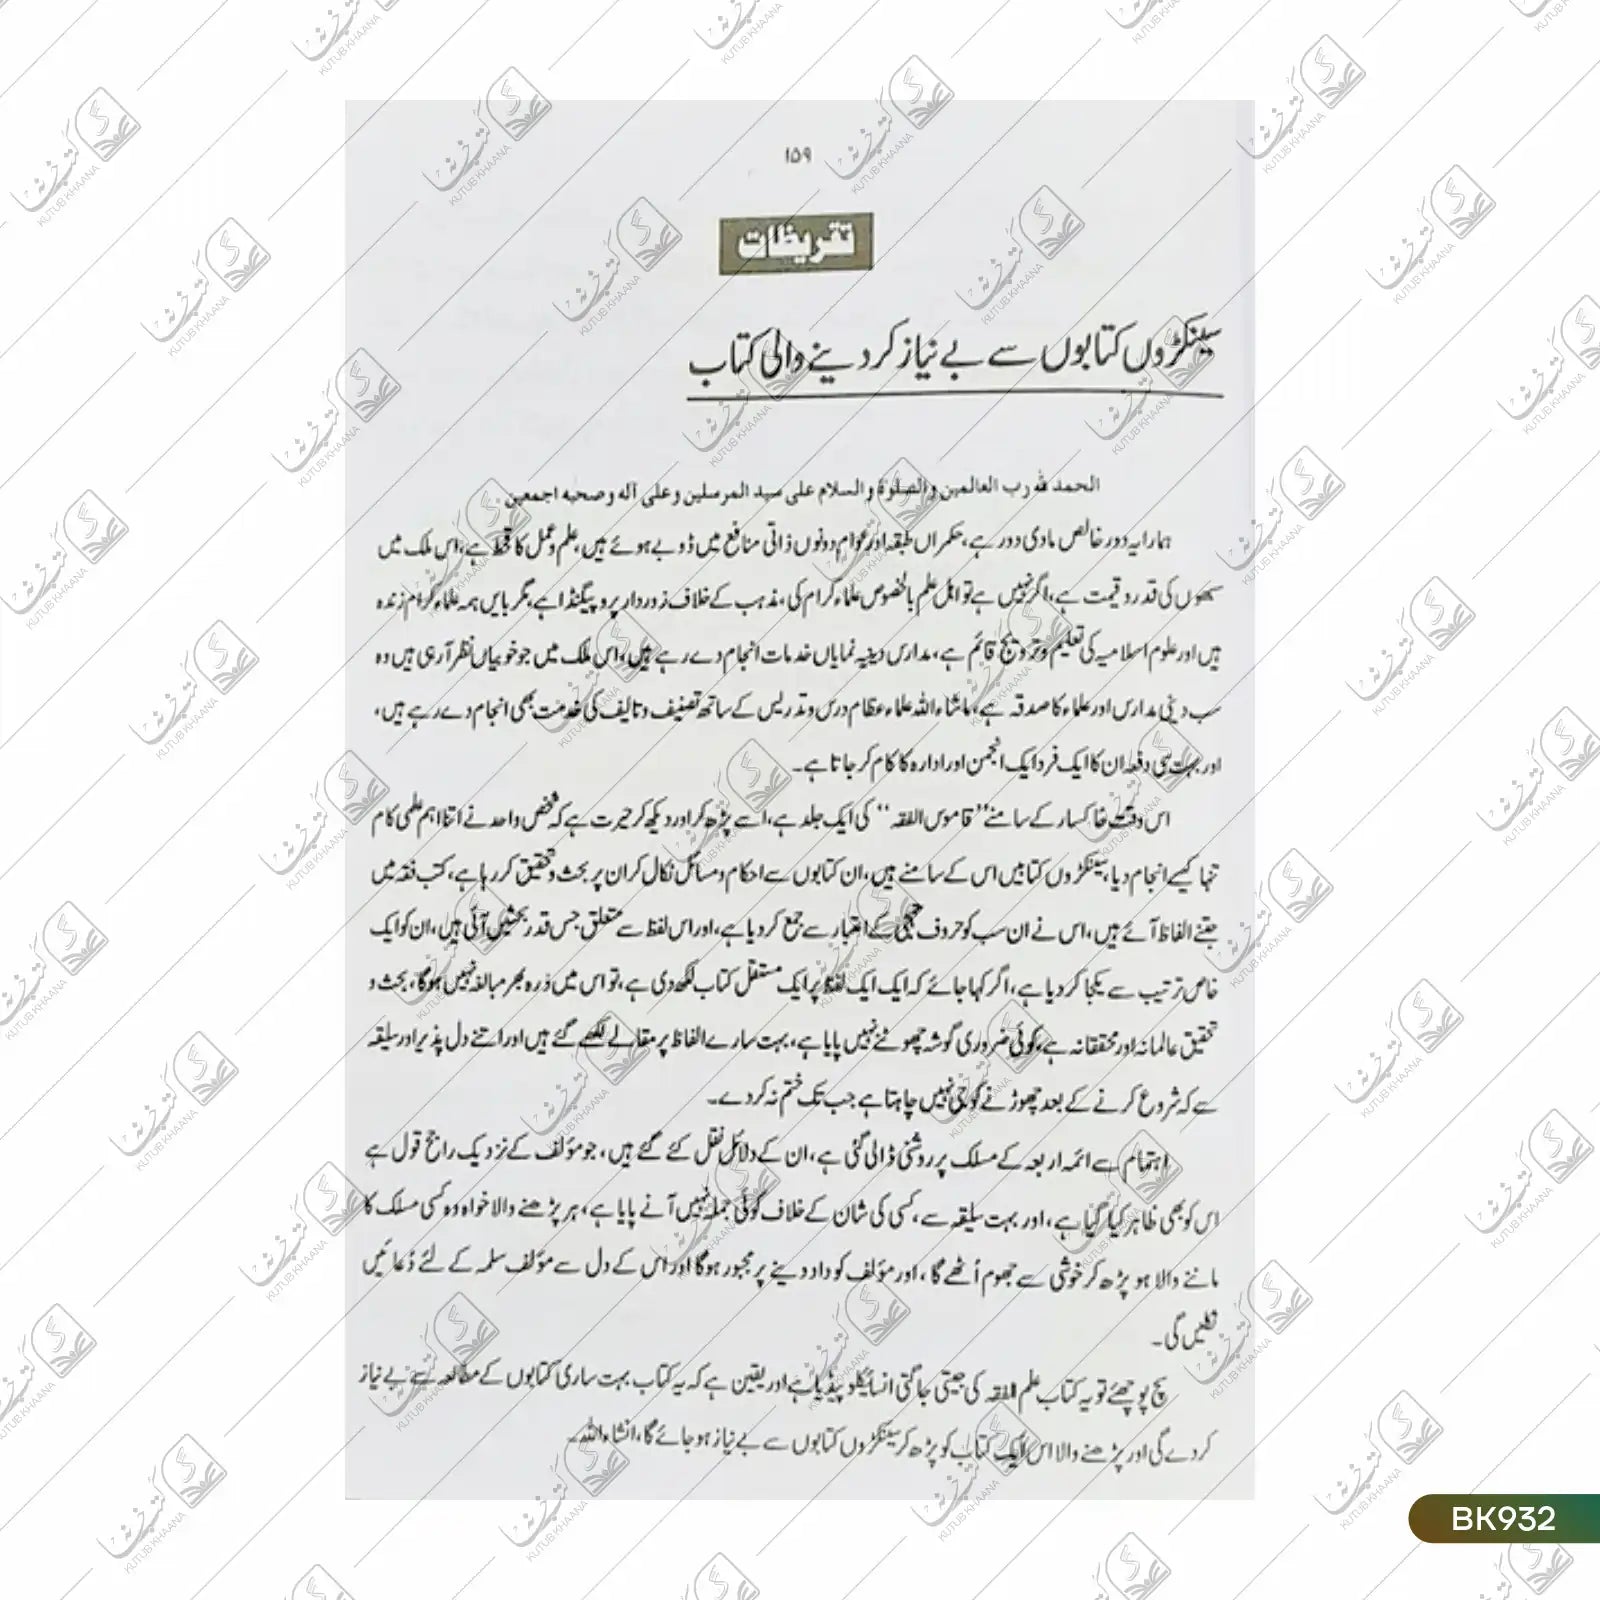 ۱۵۹
تقریظات
سینکڑوں کتابوں سے بے نیاز کر دینے والی کتاب
الحمد للہ رب العالمین والصلوۃ والسلام علی سید المرسلین وعلی آلہ وصحبہ اجمعین
ہمارا یہ دور خالص مادی دور ہے، حکمراں طبقہ اور عوام دونوں ذاتی منافع میں ڈوبے ہوئے ہیں، علم و عمل کا قحط ہے، اس ملک میں
سبھوں کی قدر و قیمت ہے، اگر نہیں ہے تو اہل علم بالخصوص علماء کرام کی، مذہب کے خلاف زوردار پروپیگنڈا ہے، مگر بایں ہمہ علماء کرام زندہ
ہیں اور علوم اسلامیہ کی تعلیم و ترویج قائم ہے، مدارس دینیہ نمایاں خدمات انجام دے رہے ہیں، اس ملک میں جو خوبیاں نظر آرہی ہیں وہ
سب دینی مدارس اور علماء کا صدقہ ہے، ماشاء اللہ علماء عظام درس و تدریس کے ساتھ تصنیف و تالیف کی خدمت بھی انجام دے رہے ہیں،
اور بہت سی دفعہ ان کا ایک فرد ایک انجمن اور ادارہ کا کام کر جاتا ہے۔
اس وقت خاکسار کے سامنے "قاموس الفقہ" کی ایک جلد ہے، اسے پڑھ کر اور دیکھ کر حیرت ہے کہ شخص واحد نے اتنا اہم علمی کام
تنہا کیسے انجام دیا، سینکڑوں کتابیں اس کے سامنے ہیں، ان کتابوں سے احکام و مسائل نکال کر ان پر بحث و تحقیق کر رہا ہے، کتب فقہ میں
جتنے الفاظ آئے ہیں، اس نے ان سب کو حروف تہجی کے اعتبار سے جمع کر دیا ہے، اور اس لفظ سے متعلق جس قدر بحثیں آئی ہیں، ان کو ایک
خاص ترتیب سے یکجا کر دیا ہے، اگر کہا جائے کہ ایک ایک لفظ پر ایک مستقل کتاب لکھ دی ہے، تو اس میں ذرہ بھر مبالغہ نہیں ہوگا، بحث و
تحقیق عالمانہ اور محققانہ ہے، کوئی ضروری گوشہ چھوٹنے نہیں پایا ہے، بہت سارے الفاظ پر مقالے لکھے گئے ہیں اور اتنے دل پذیر اور سلیقہ
سے کہ شروع کرنے کے بعد چھوڑنے کو جی نہیں چاہتا ہے جب تک ختم نہ کر دے۔
اہتمام سے ائمہ اربعہ کے مسلک پر روشنی ڈالی گئی ہے، ان کے دلائل نقل کئے گئے ہیں، جو مؤلف کے نزدیک راجح قول ہے
اس کو بھی ظاہر کیا گیا ہے، اور بہت سلیقہ سے، کسی کی شان کے خلاف کوئی جملہ نہیں آنے پایا ہے، ہر پڑھنے والا خواہ وہ کسی مسلک کا
ماننے والا ہو پڑھ کر خوشی سے جھوم اُٹھے گا، اور مؤلف کو داد دینے پر مجبور ہوگا اور اس کے دل سے مؤلف سلمہ کے لئے دُعائیں
نکلیں گی۔
سچ پوچھئے تو یہ کتاب علم الفقہ کی جیتی جاگتی انسائیکلو پیڈیا ہے اور یقین ہے کہ یہ کتاب بہت ساری کتابوں کے مطالعہ سے بے نیاز
کر دے گی اور پڑھنے والا اس ایک کتاب کو پڑھ کر سینکڑوں کتابوں سے بے نیاز ہو جائے گا، انشاء اللہ۔
BK932